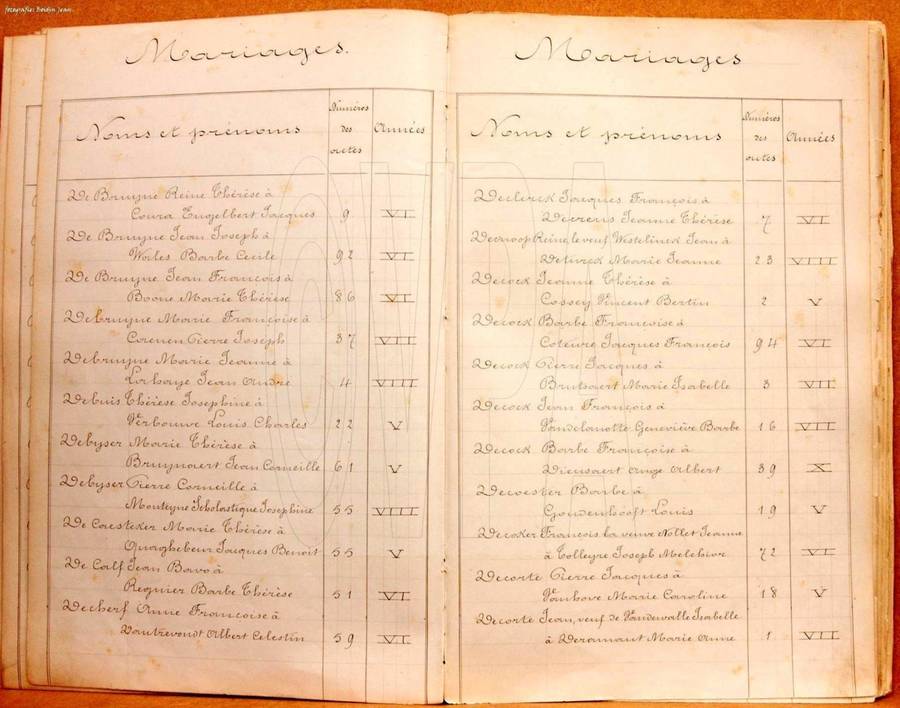 fotografie: Boidin Jean.
Mariages.
Noms et prénoms
Numéros des actes
Années
De Bruyne Reine Thérèse à
Engelbert Jacques 9 VI
De Bruyne Jean Joseph à
Barbe Cecile 92 VI
De Bruyne Jean François à
Boone Marie Thérèse 86 VI
Debruyne Marie Françoise à
Coenen Pierre Joseph 37 VII
Debruyne Marie Jeanne à
Jean André 4 VIII
Debuis Thérèse Josephine à
Louis Charles 22 V
Debyser Marie Thérèse à
Bruynaert Jean Corneille 61 V
Debyser Pierre Corneille à
Monteyne Scholastique Josephine 55 VIII
De Caesteker Marie Thérèse à
Quaghebeur Jacques Benoit 55 V
De Calf Jean Bavo à
Regnier Barbe Thérèse 51 VI
Decherf Anne Françoise à
Albert Celestin 59 VI
Mariages
Noms et prénoms
Numéros des actes
Années
Declerck Jacques François à
Jeanne Thérèse 7 VI
Reine, le veuf Westelinck Jean à
Marie Jeanne 23 VIII
Decock Jeanne Thérèse à
Cossey Vincent Bertin 2 V
Decock Barbe Françoise à
Jacques François 94 VI
Decock Pierre Jacques à
Brutsaert Marie Isabelle 3 VII
Decock Jean François à
Vandelanotte Geneviève Barbe 16 VII
Decock Barbe Françoise à
Dieusaert Ange Albert 39 X
Decoester Barbe à
Goudenhooft Louis 19 V
Decoker François, la veuve Nollet Jeanne
à Tolleyre Joseph Melchior 72 VI
Decorte Pierre Jacques à
Vanhove Marie Caroline 18 V
Decorte Jean, veuf de Vandewalle Isabelle
à Deramaut Marie Anne 1 VII